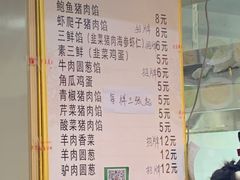 鲍鱼猪肉馅 8元
虾爬子猪肉馅 招牌 8元
三鲜馅(韭菜猪肉海参虾仁)招牌 6元
素三鲜(韭菜鸡蛋) 5元
牛肉圆葱馅 招牌 6元
角瓜鸡蛋 5元
青椒猪肉馅 5元
芹菜猪肉馅 5元
酸菜猪肉馅 5元
羊肉香菜 招牌 12元
羊肉圆葱 招牌 12元
驴肉圆葱 招牌 12元
每样二张起